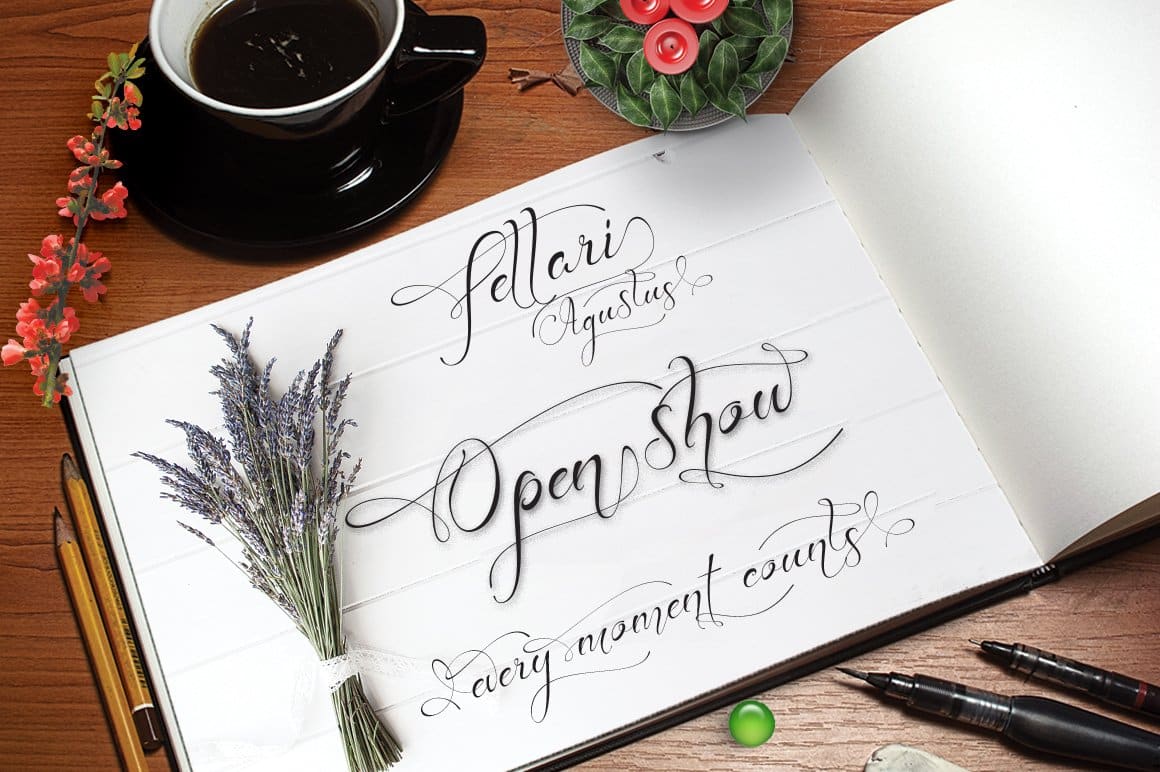 fettari
Agustus
Open Show
every moment counts